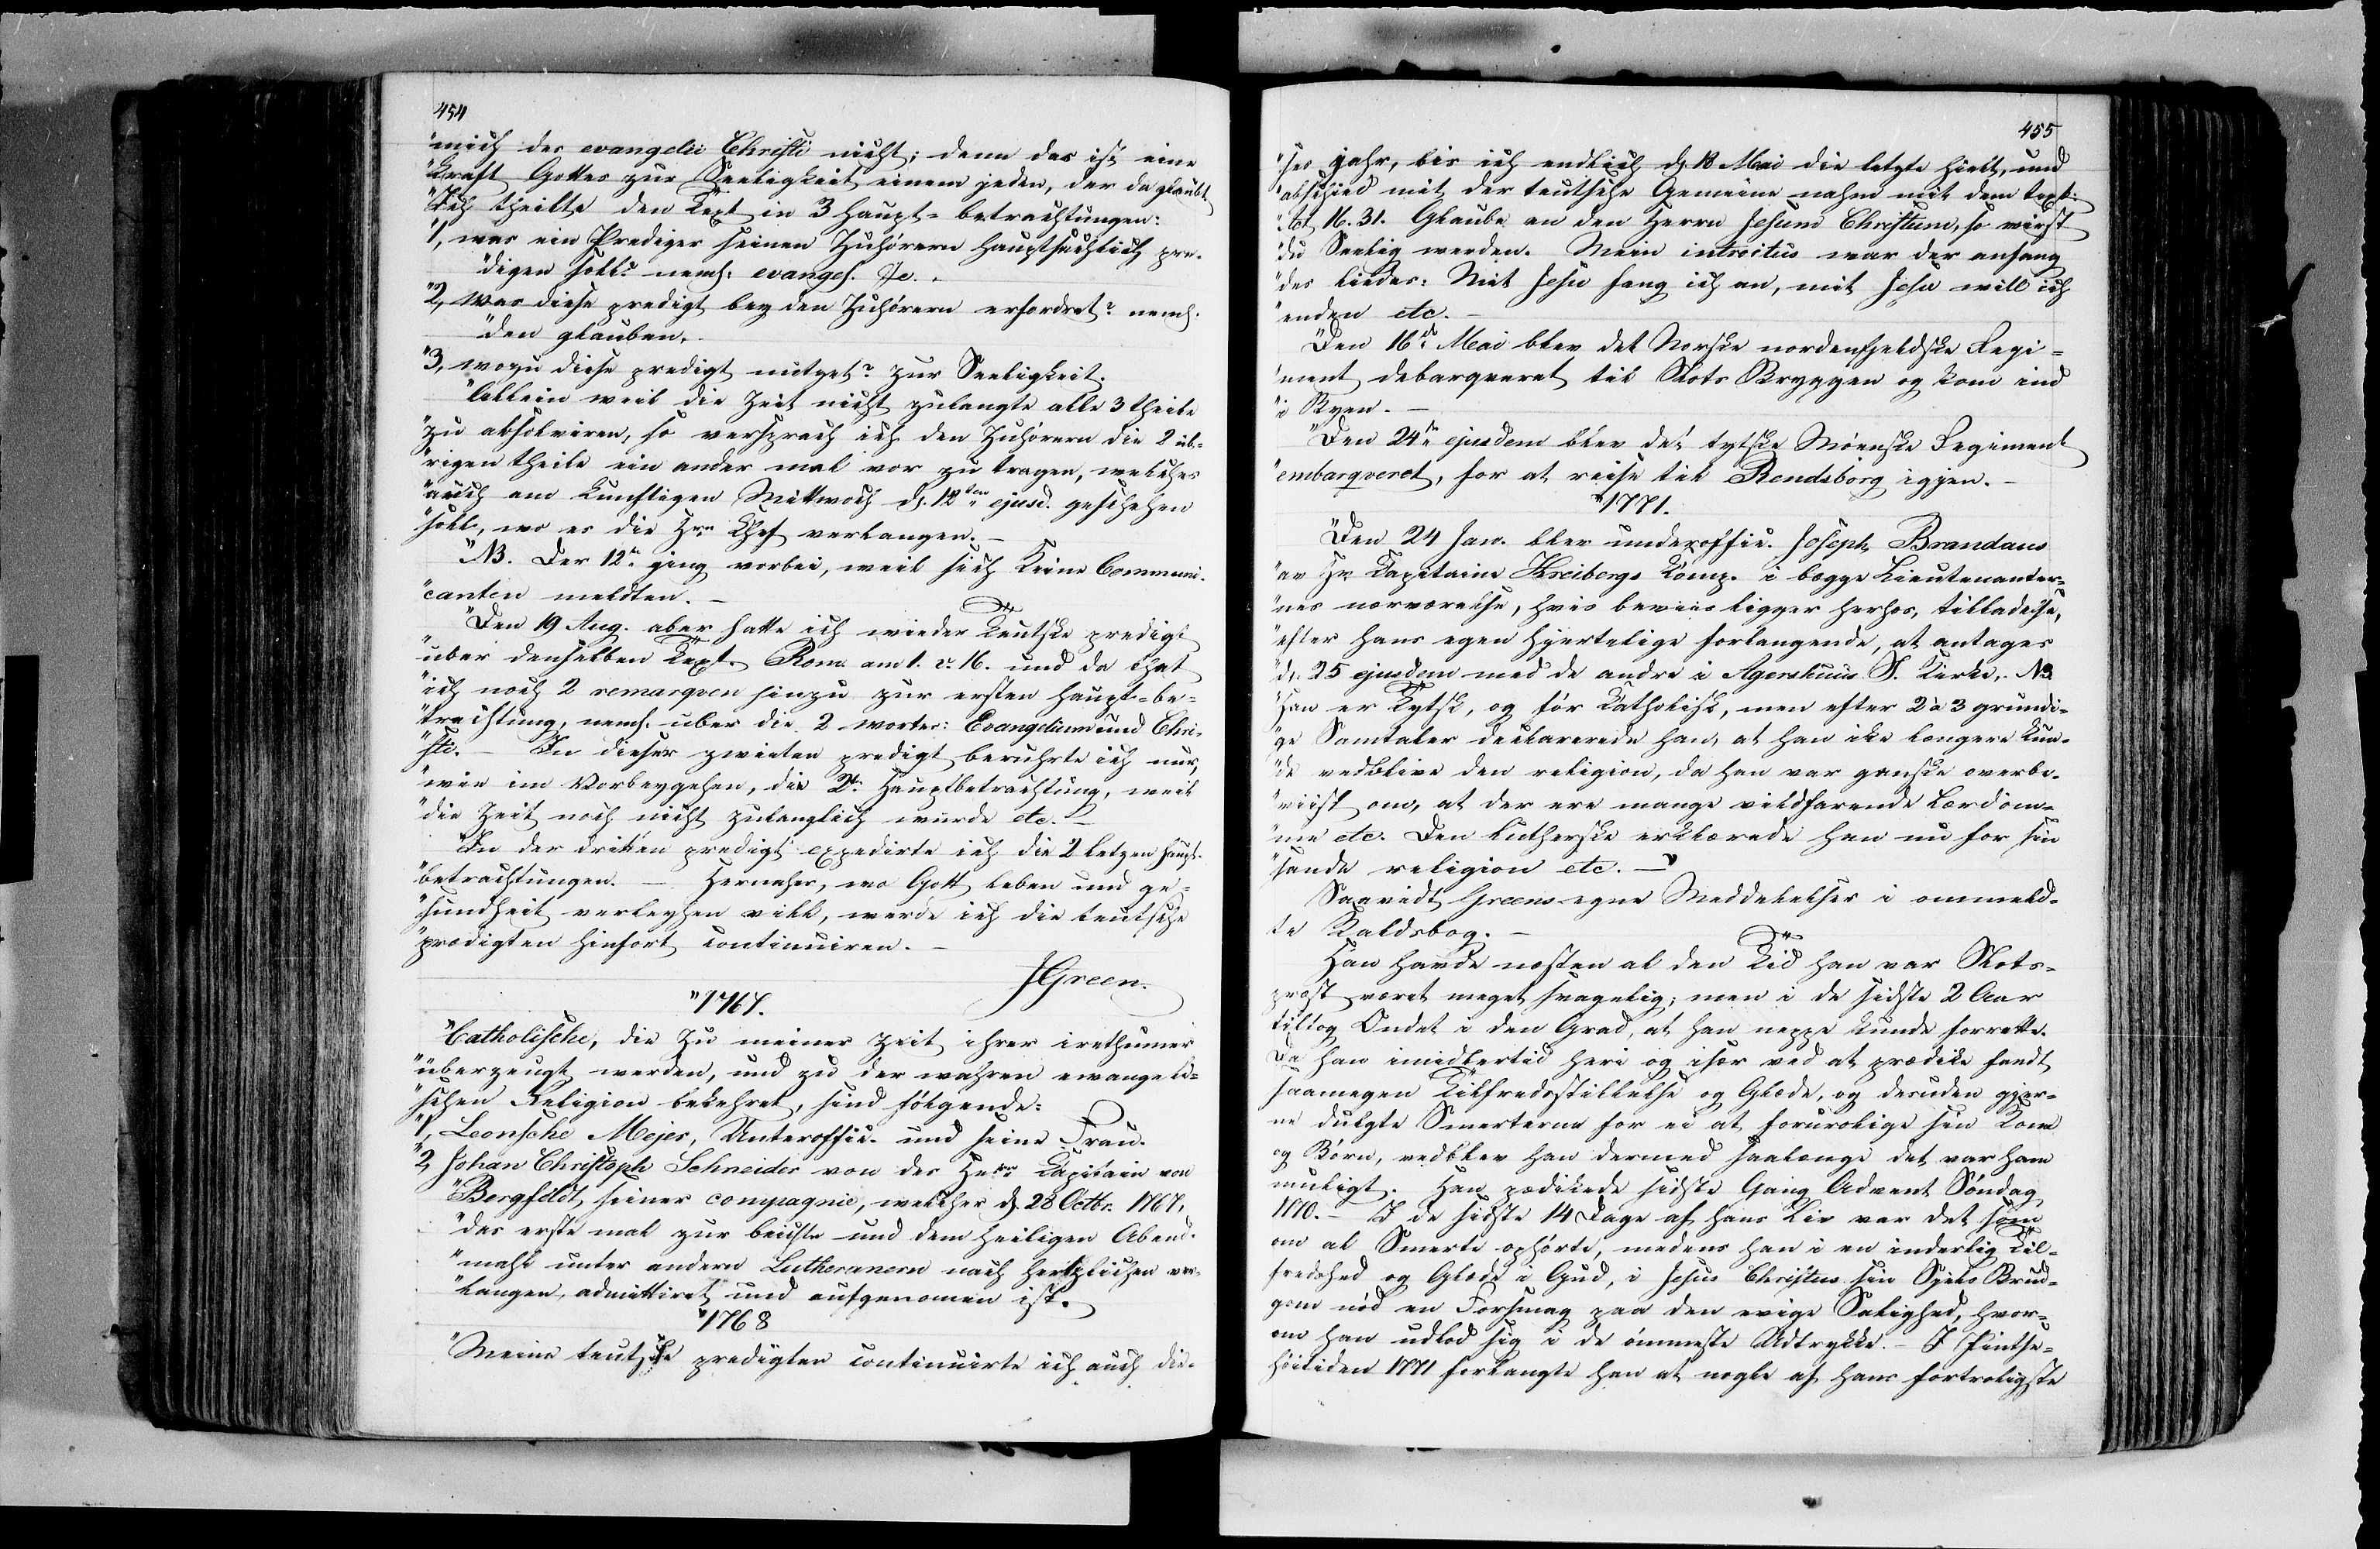 454
"mich des evangelii Christi nicht; denn das ist eine
"Kraft Gottes zur Seeligkeit einem jeden, der da glaubt
"Ich theilte den Text in 3 Haupt-betrachtungen:
"1, was ein Prediger seinen Zuhörern hauptsächlich pre-
"digen soll? nemh: evangel. Je.
"2, Was diese predigt bey den Zuhörern erfordret? nemh.
"den glauben.
"3, wozu diese predigt nutzet? zur Seeligkeit.
"allein weil die Zeit nicht zulangte alle 3 theile
"zu absolviren, so versprach ich den Zuhörern die 2 üb-
"rigen theile ein ander mal vor zu tragen, welches
"auch am Künftigen Mittwoch d. 12ten ejusd. geschehen
"soll, wo es die Hrn Chef verlangen. –
"NB. Der 12te ging vorbei, weil sich Keine Communi-
"canten meldten. –
"Den 19 Aug. aber hatte ich wieder teutsche predigt
"über denselben Text. Rom. am 1. v. 16. und da that
"ich noch 2 remarqven hinzu zur ersten Haupt-be-
"trachtung, nemh. uber die 2 worter: Evangelium und Chri-
"sti. – In dieser zweiten predigt beruhrte ich nur,
"wie im Vorbeygehen, die 2te Hauptbetrachtung, weil
"die Zeit noch nicht zulanglich wurde etc. –
"In der dritten predigt expedirte ich die 2 letzen Haupt-
"betrachtungen. – Hernaher, wo Gott leben und ge-
"sundheit verleyhen will, werde ich die teutsche
"prædigten hinfort continuiren. –
JGreen.
"1767.
"Catholische, die zu meiner Zeit ihrer irethumer
"überzeugt werden, und zu der wahren evangeli-
"schen Religion bekehret, sind fölgende:
"1, Leonsche Mejer, Unteroffic. und seine Frau.
"2, Johan Christoph Schneider von des Herrn Capitain von
"Bergfeldt seiner compagnie, welcher d. 28 Octbr. 1767,
"das erste mal zur beichte und dem heiligen Abend-
"mahl unter andern Lutheranern nach herzlichen ver-
"langen, admittiret und aufgenomen ist.
"1768
"Meine teutsche predigten continuirte ich auch die-
455
"ses jahr, bis ich endlich d. 18 Mai die letzte hielt, und
"abschied mit der teutsche Gemeine nahm mit dem text:
"Act. 16. 31. Glaube an den Herrn Jesum Christum, so wirst
"du Seelig werden. Mein introitus war der anfang
"des liedes: Mit Jesu fang ich an, mit Jesu will ich
"enden etc. –
"Den 16de Mai blev det Norske nordenfjeldske Regi-
"ment debarqveret til Slots Bryggen og kom ind
"i Byen. –
"Den 24de ejusdem blev det tytske Møenske Regiment
"embarqveret, for at reise til Rendsborg igjen. –
"1771.
"Den 24 Jan. blev underoffic. Joseph Brandaus
"av Hr Capitaine Kreibergs Comp. i begge Lieutenanter-
"nes nærværelse, hvis beviis ligger herhos, tilladelse,
"efter hans egen hjertelige forlangende, at antages
"d. 25 ejusdem med de andre i Agershuus S. Kirke. NB.
"Han er Tytsk, og før Katholisk, men efter 2 à 3 grundi-
"ge Samtaler declarerede han, at han ike længere kun-
"de vedblive den religion, da han var ganske overbe-
"viist om, at der ere mange vildfarende Lærdom-
"me etc. Den Lutherske erklærede han nu for sin
"sande religion etc. –"
Saavidt Greens egne Meddelelser i ommeld-
te Kaldsbog. –
Han havde næsten al den Tid han var Slots-
præst været meget svagelig; men i de sidste 2 Aar
tiltog Ondet i den Grad, at han neppe kunde forrette.
Da han imidlertid heri og især ved at prædike fandt
saamegen Tilfredsstillelse og Glæde, og desuden gjer-
ne dulgte Smerterne for ei at forurolige sin Kone
og Børn, vedblev han dermed saalænge det var ham
muligt. Han prædikede sidste Gang Advent Søndag
1770. – I de sidste 14 Dage af hans Liv var det som
om al Smerte ophørte, medens han i en inderlig Til-
fredshed og Glæde i Gud, i Jesus Christus sin Sjels Brud-
gom nød en Forsmag paa den evige Salighed, hvor-
om han udlod sig i de ømmeste Udtrykke. – I Pintse-
høitiden 1771 forlangte han at nogle af hans fortroligste